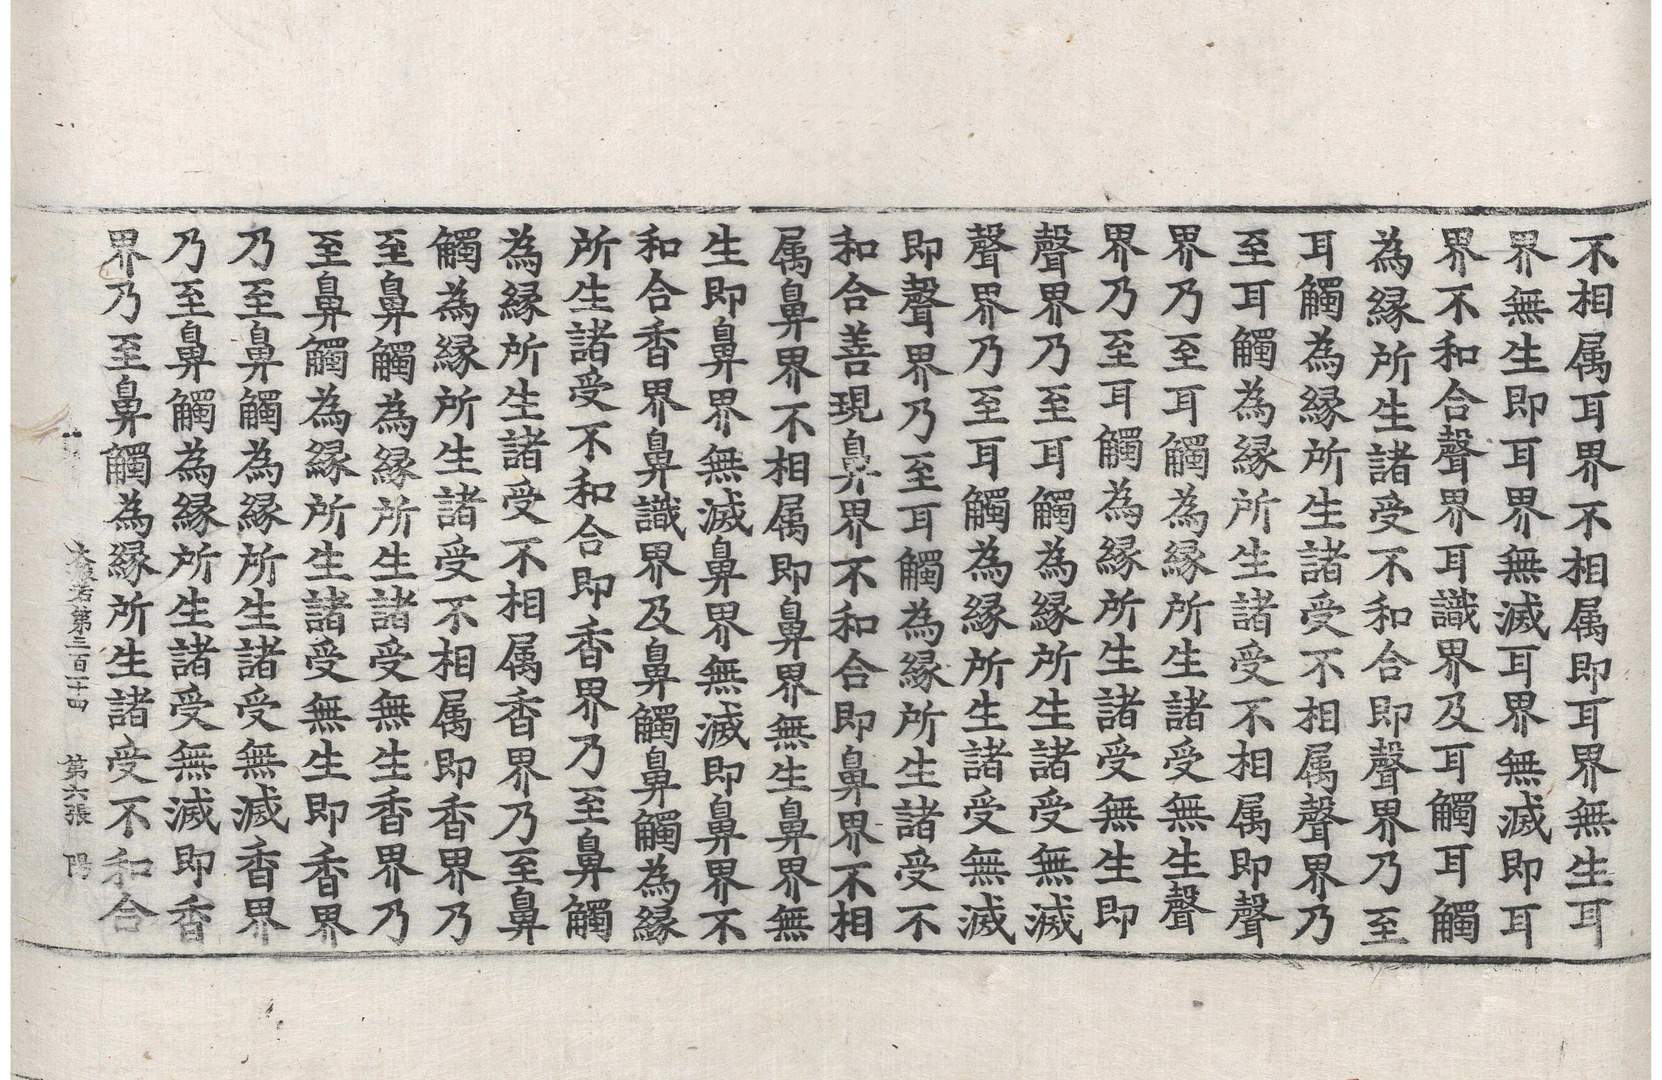 不相属耳界不相属即耳界無生耳
界無生即耳界無滅耳界無滅即耳
界不和合聲界耳識界及耳觸耳觸
為縁所生諸受不和合即聲界乃至
耳觸為縁所生諸受不相属聲界乃
至耳觸為縁所生諸受不相属即聲
界乃至耳觸為縁所生諸受無生聲
界乃至耳觸為縁所生諸受無生即
聲界乃至耳觸為縁所生諸受無滅
聲界乃至耳觸為縁所生諸受無滅
即聲界乃至耳觸為縁所生諸受不
和合善現鼻界不和合即鼻界不相
属鼻界不相属即鼻界無生鼻界無
生即鼻界無滅鼻界無滅即鼻界不
和合香界鼻識界及鼻觸鼻觸為縁
所生諸受不和合即香界乃至鼻觸
為縁所生諸受不相属香界乃至鼻
觸為縁所生諸受不相属即香界乃
至鼻觸為縁所生諸受無生香界乃
至鼻觸為縁所生諸受無生即香界
乃至鼻觸為縁所生諸受無滅香界
乃至鼻觸為縁所生諸受無滅即香
界乃至鼻觸為縁所生諸受不和合
大般若第三百一十四 第六張 陽